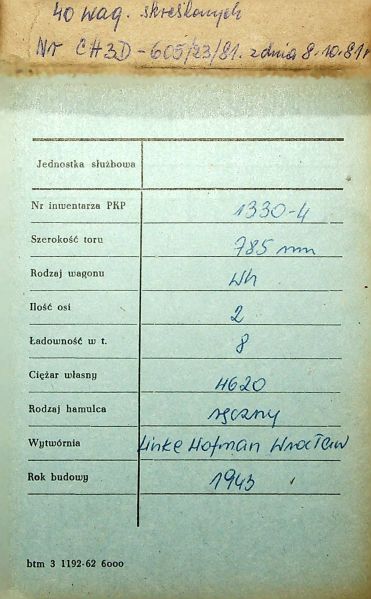 40 wag. skreślonych
Nr CH3D-605/23/81. z dnia 8.10.81r
Jednostka służbowa
Nr inwentarza PKP 1330-4
Szerokość toru 785 mm
Rodzaj wagonu Wh
Ilość osi 2
Ładowność w t. 8
Ciężar własny 4620
Rodzaj hamulca ręczny
Wytwórnia Linke Hofman Wrocław
Rok budowy 1943
btm 3 1192-62 6000